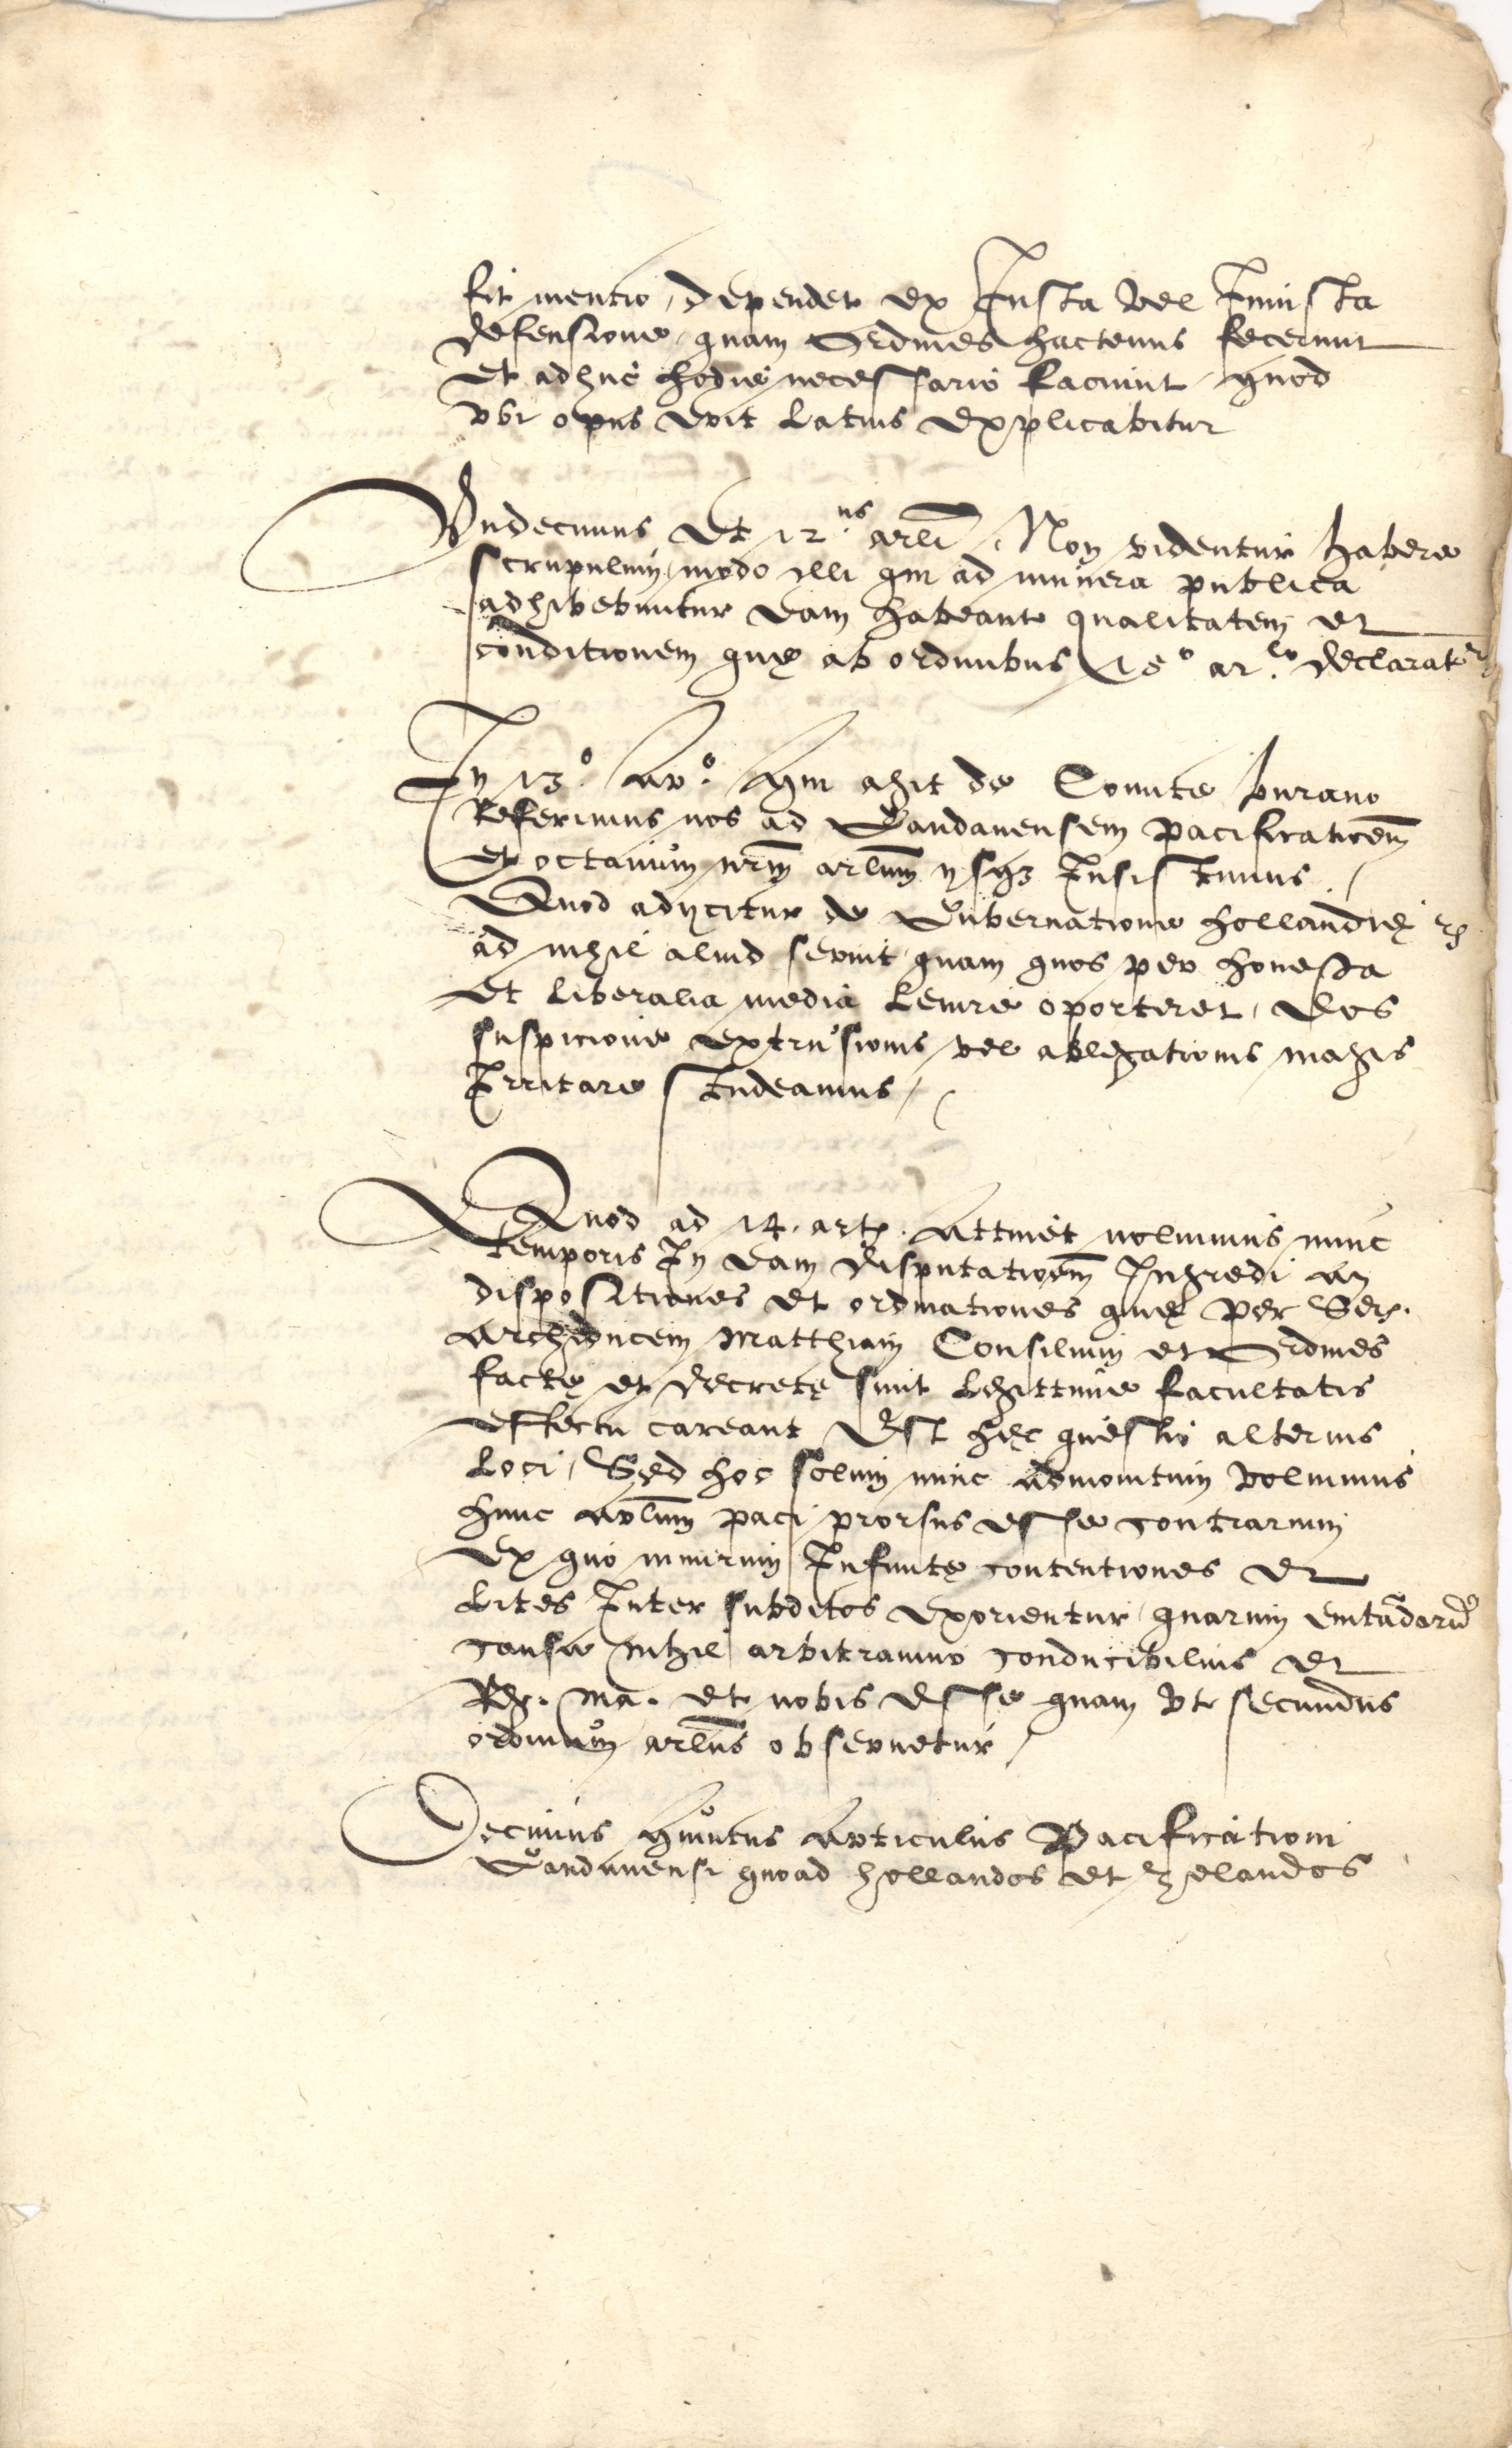 fit mentio, dependet ex Iusta vel Iniusta
defensione, quam Ordines hactenus fecerunt
Et adhuc hodie necessario faciunt, quod
vbi opus erit latius explicabitur
Vndecimus Et 12.us arli, Non videntur habere
scrupulum, modo illi qui ad munera publica
adhibebuntur eam habeant qualitatem et
conditionem quę ab ordinibus 15º ar.lo declaratr
In 13º. Arº. qui agit de Comite burano
Referimus nos ad Gandauensem pacificationem
Et octauum nrm arlum ysq3 Insistimus,
Quod adijcitur de Gubernatione hollandię
ad nihil aliud seruit, quam quos per honesta
Et liberalia media lenire oporteret, eos
suspicione extrusionis vel ablegationis magis
Irritare studeamus,
Quod ad 14. art. Attinet nolumus nunc
temporis In eam disputationem Ingredi an
dispositiones et ordinationes quę per Ser.
Archiducem Matthiam Consilium et Ordines
factę et decretę sunt legittimę facultatis
effectu careant Est hęc questio alterius
loci, Sed hoc solum nunc admonitum volumus
hunc arlum paci prorsus esse contrarium
Ex quo nimirum Infinitę contentiones et
lites Inter subditos exorientur, quarum euitadarũ
causa nihil arbitramur conducibilius et
Re. Ma. et nobis esse quam vt secundus
ordinum arlus obseruetur,
Decimus quintus Articulus Pacificationi
Gandauensi quoad hollandos et zelandos